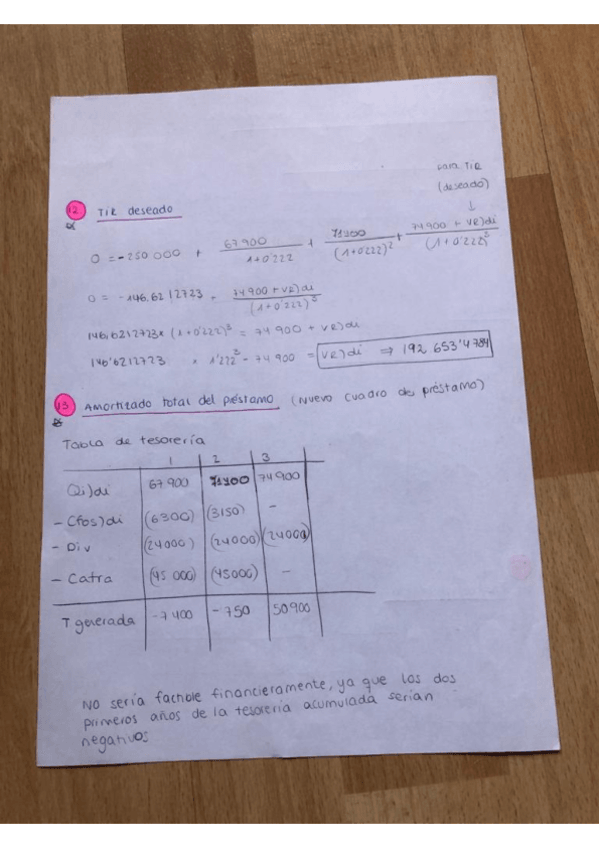 para TIR
(deseado)
↓
12. TIR deseado
0 = -250 000 + 67 900 / 1+0'222 + 71400 / (1+0'222)² + 74 900 + VR)di / (1+0'222)³
0 = -146.6212723 + 74 900 + VR)di / (1+0'222)³
146,6212723 x (1+0'222)³ = 74 900 + VR)di
146'6212723 x 1'222³ - 74 900 = VR)di ⇒ 192 653'4784
13. Amortizado total del péstamo (Nuevo cuadro de préstamo)
Tabla de tesorería
1 2 3
Qi)di 67 900 71400 74 900
- Cfos)di (6300) (3150) -
- Div (24000) (24000) (24000)
- Catra (45 000) (45000) -
T generada -7 400 -750 50 900
No sería factible financieramente, ya que los dos
primeros años de la tesorería acumulada serían
negativos